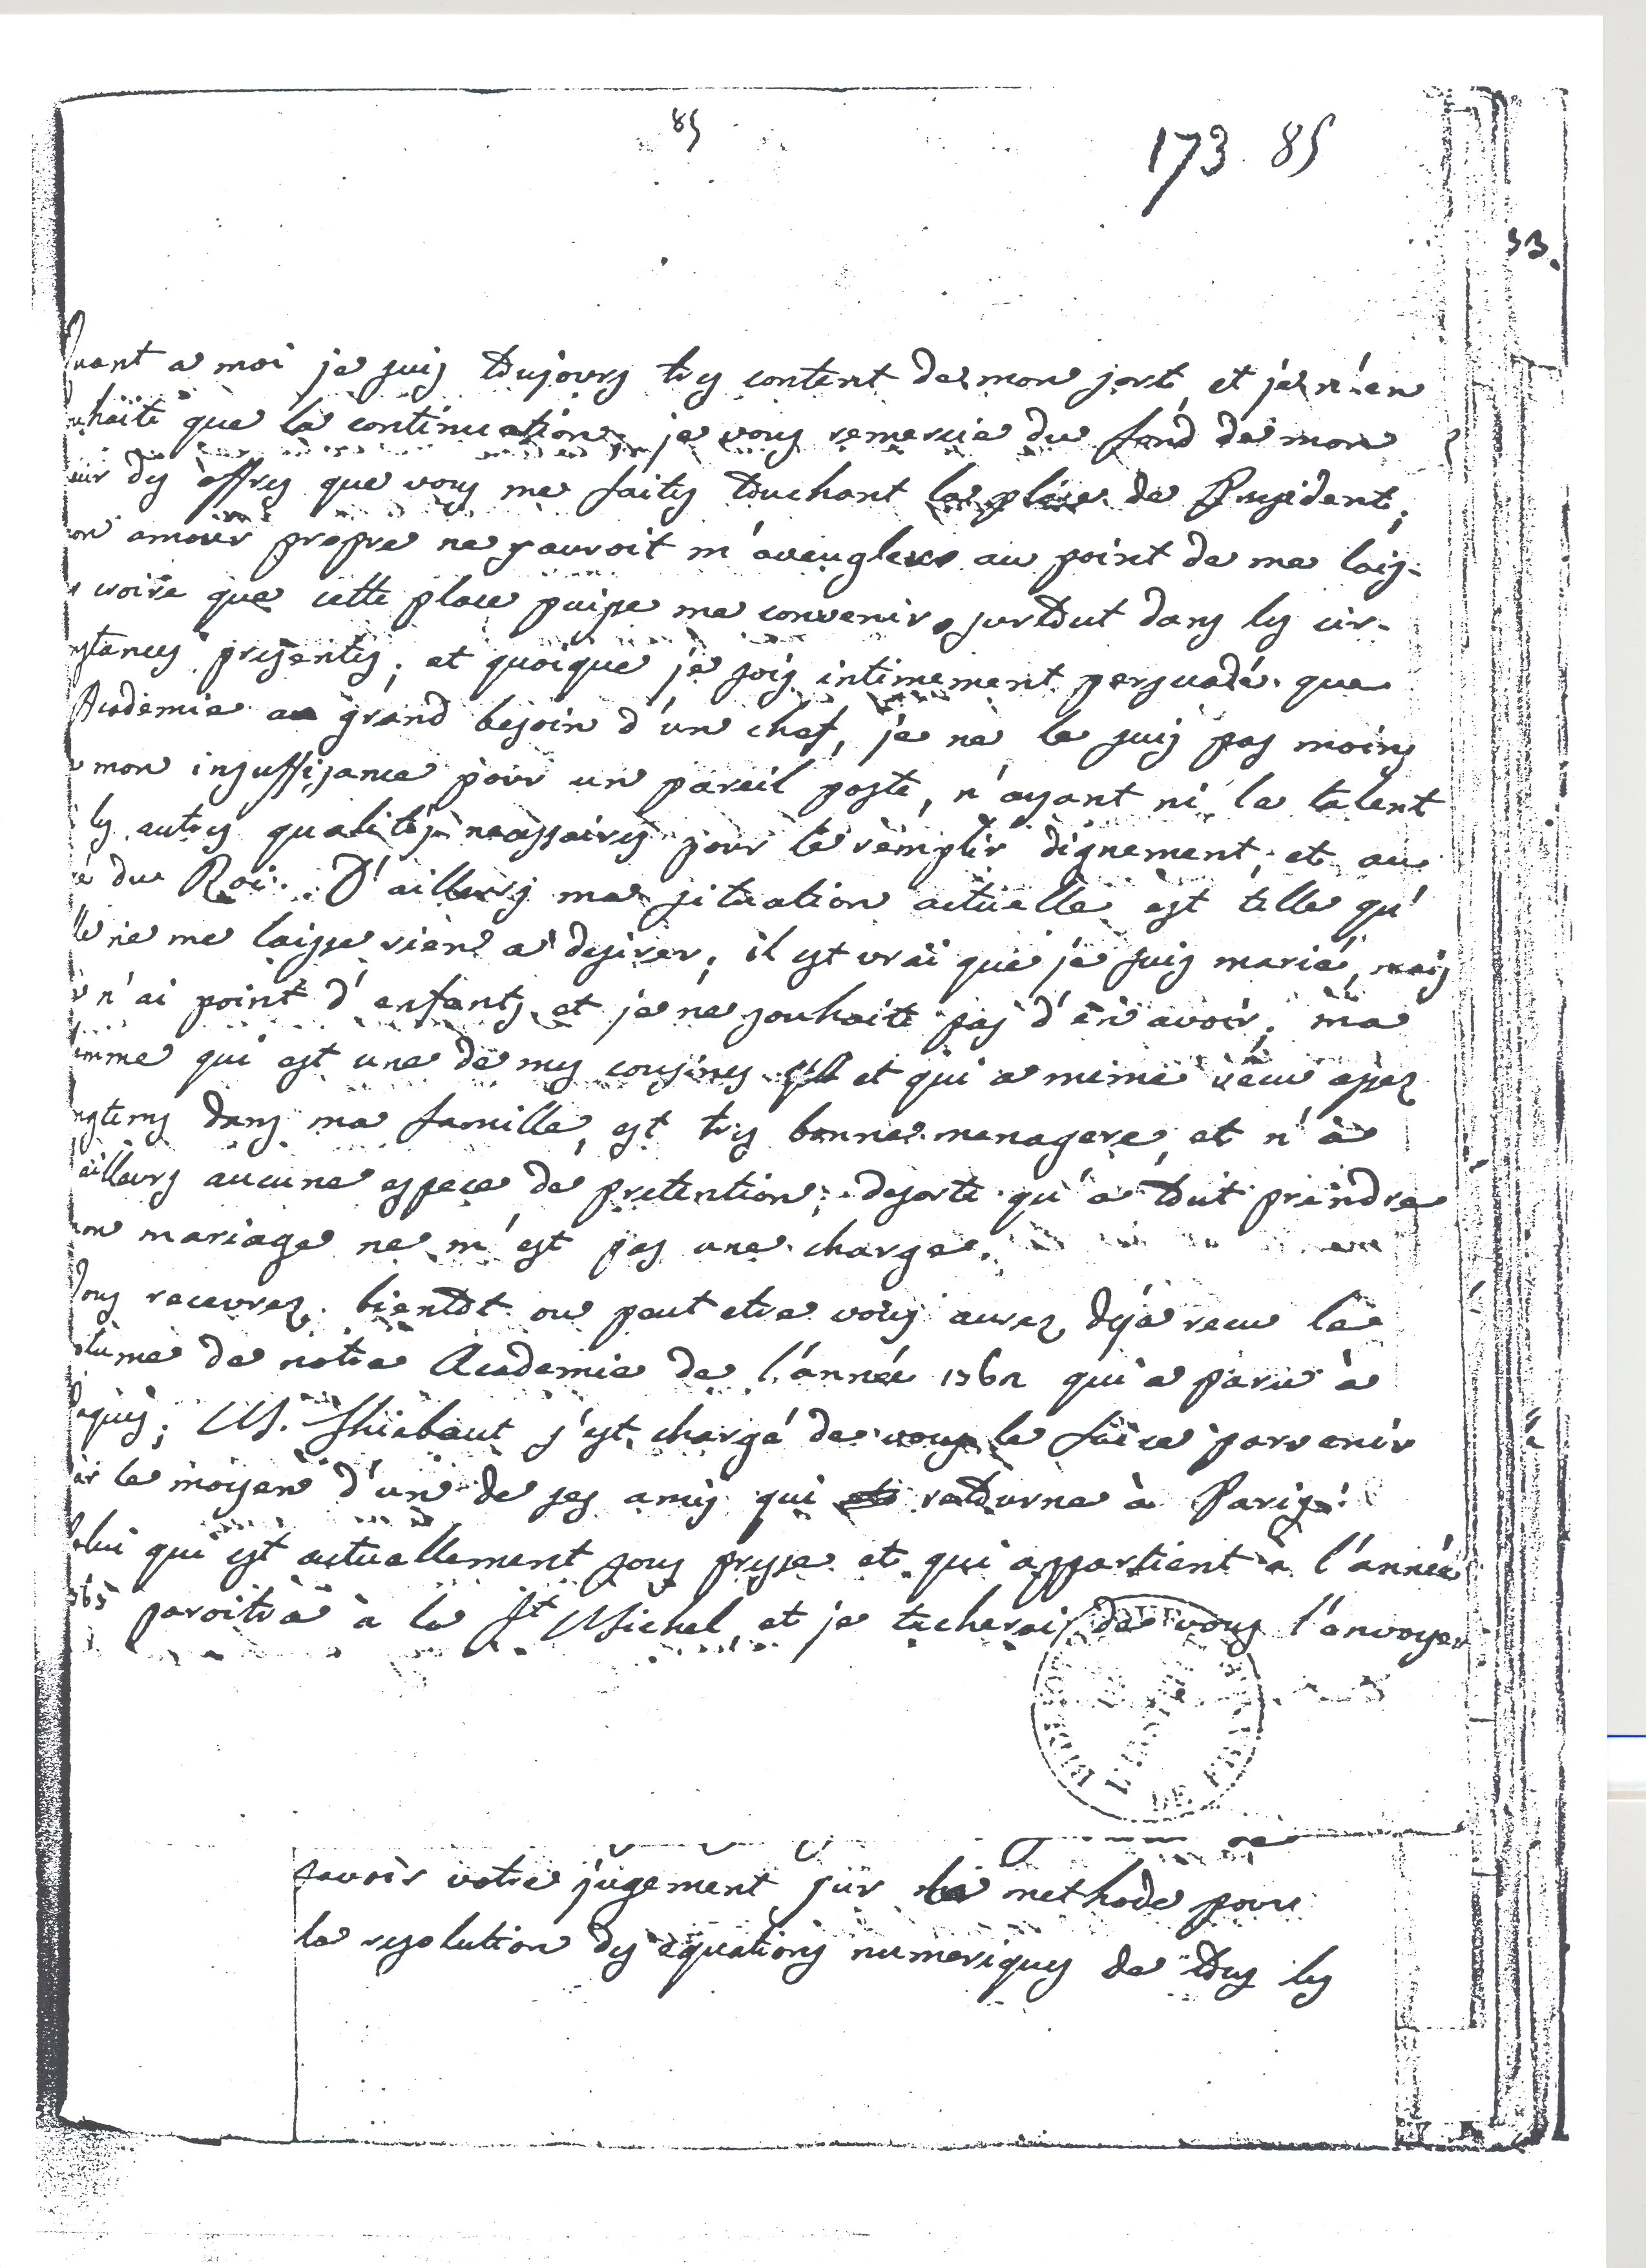 85
173 85
53.
Quant a moi je suis toujours tres content de mon sort, et je n'en
uhaite que la continuation, je vous remercie du fond de mon
eur des offres que vous me faites touchant la place de President;
on amour propre ne sauroit m'aveugler au point de me lais-
r croire que cette place puisse me convenir, surtout dans les cir-
nstances presentes; et quoique je sois intimement persuadé que
Academie a grand besoin d'un chef, je ne le suis pas moins
e mon insuffisance pour un pareil poste, n'ayant ni le talent
i les autres qualités necessaires pour le remplir dignement, et au
é du Roi. D'ailleurs ma situation actuelle est telle qu'
lle ne me laisse rien a desirer; il est vrai que je suis marié, mais
e n'ai point d'enfants, et je ne souhaite pas d'en avoir; ma
emme qui est une de mes cousines et qui a meme vecu assez
ngtems dans ma famille, est tres bonne menagere, et n'a
ailleurs aucune espece de pretention; desorte qu'a tout prendre
on mariage ne m'est pas une charge.
Vous recevrez bientot ou peut etre vous aurez dejà recu le
olume de notre Academie de l'année 1762 qui a paru à
aques; M. Thiebaut s'est chargé de vous le faire parvenir
ar le moyen d'un de ses amis qui retourne à Paris:
elui qui est actuellement sous presse et qui appartient à l'année
765 paroitra à la St Michel, et je tacherai de vous l'envoyer
BIBLIOT
L'INSTITUT
DE FRANCE
savoir votre jugement sur ma methode pour
la resolution des equations numeriques de tous les